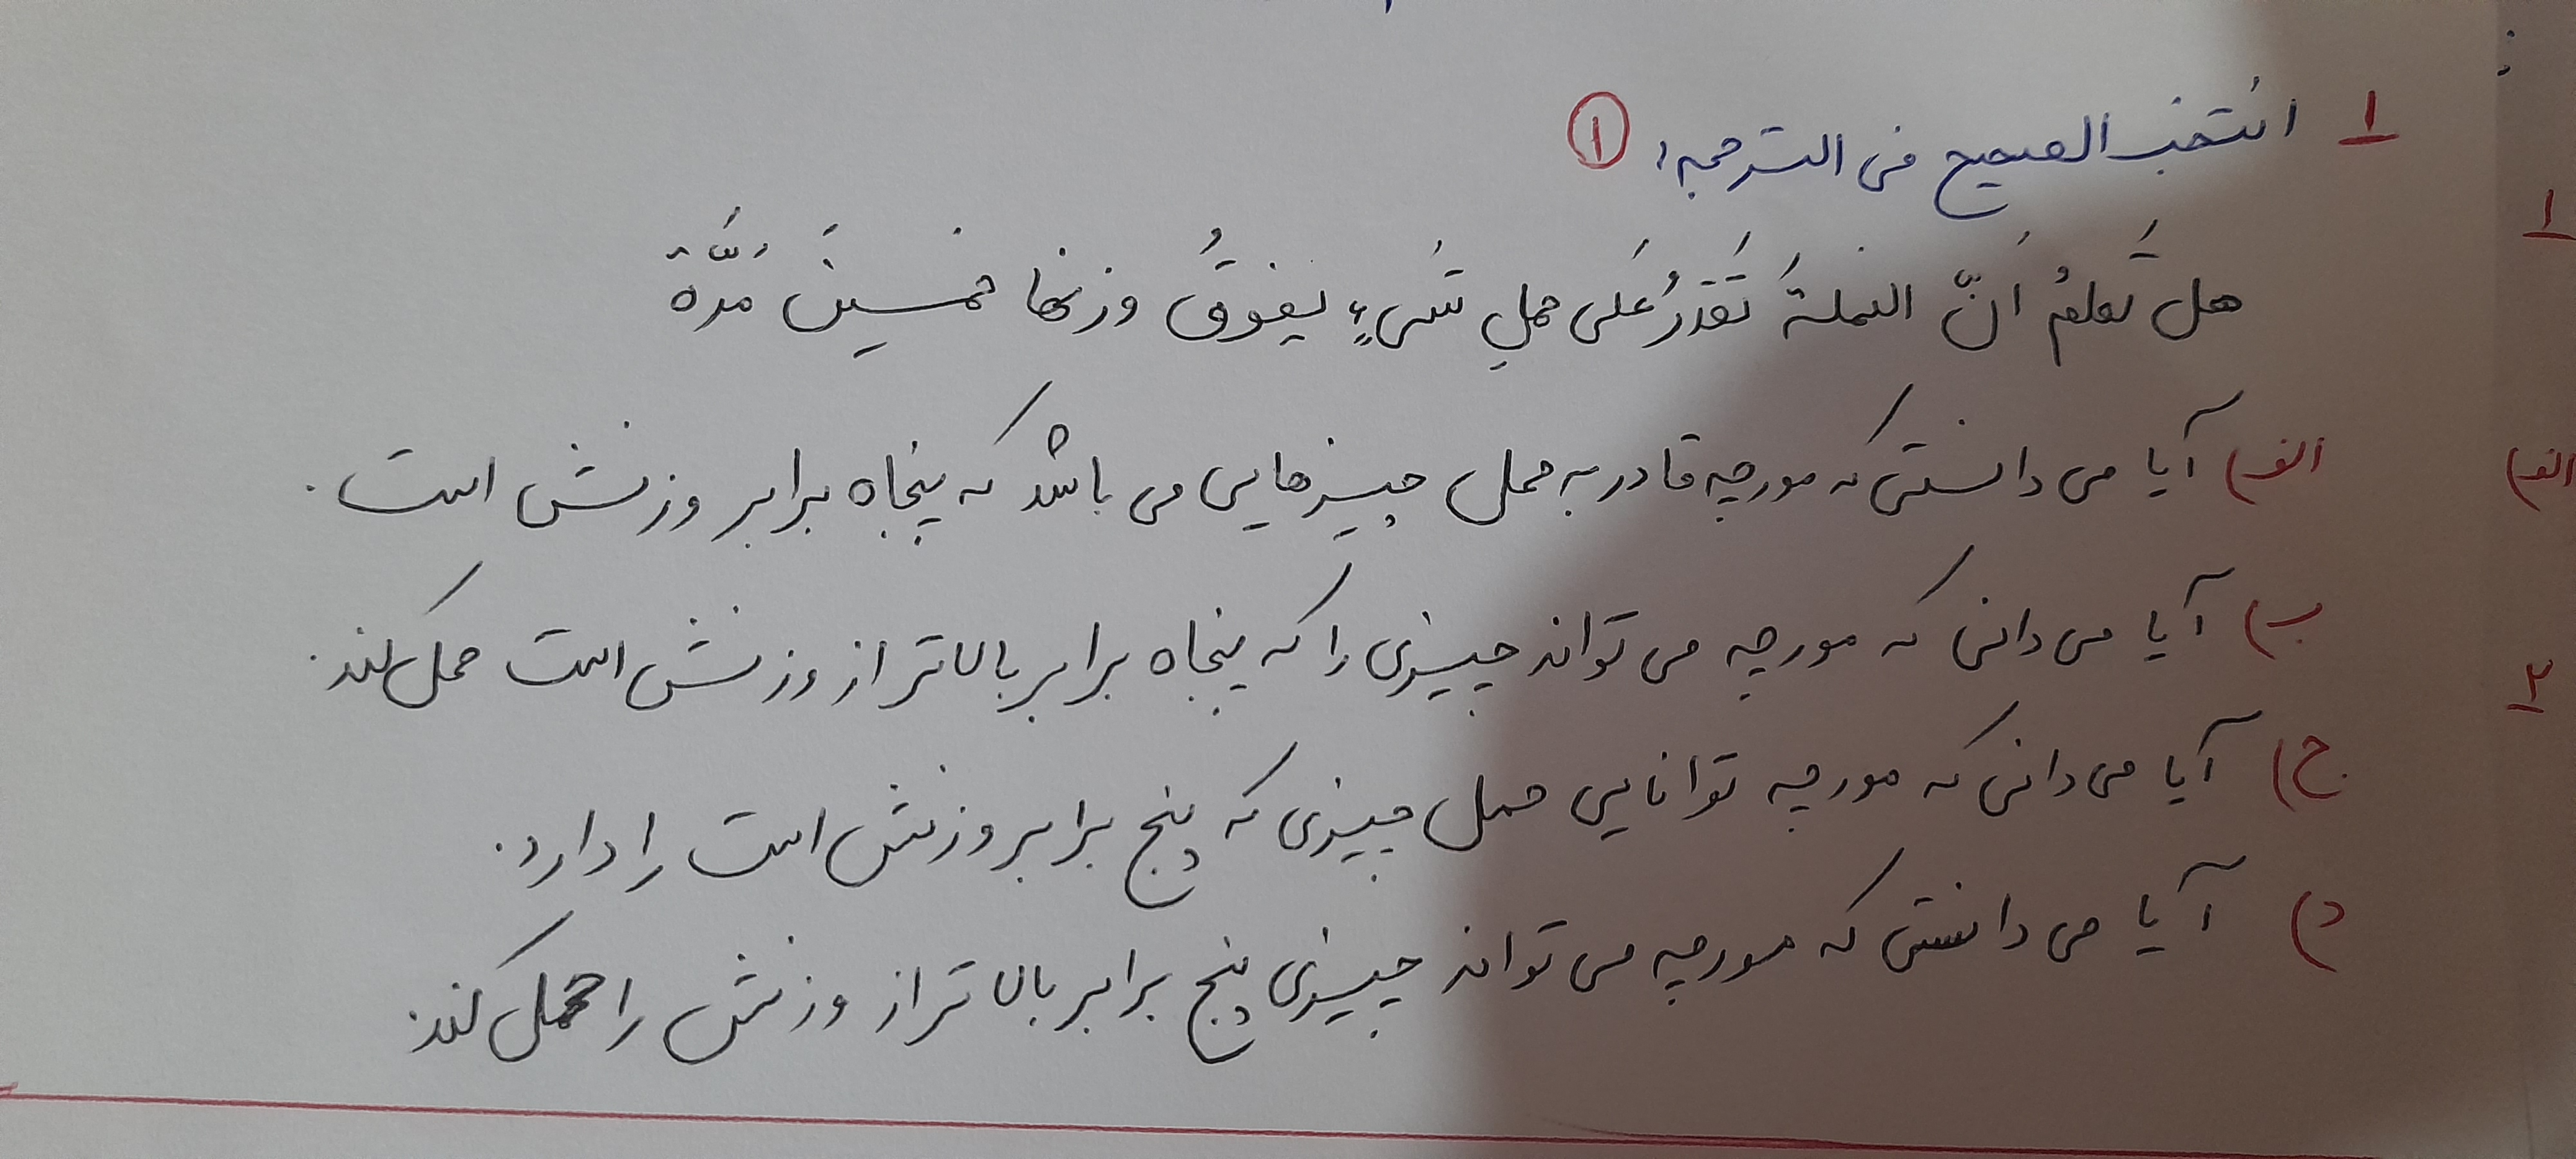 ۱ انتخب الصحیح فی الترجمه: ۱
هل تَعلمُ أنّ النملةَ تَقدرُ عَلی حملِ شَیءٍ یفوقُ وزنها خمسینَ مَرّةً
الف) آیا می دانستی که مورچه قادر به حمل چیزهایی می باشد که پنجاه برابر وزنش است.
ب) آیا می دانی که مورچه می تواند چیزی را که پنجاه برابر بالاتر از وزنش است حمل کند.
ج) آیا می دانی که مورچه توانایی حمل چیزی که پنج برابر وزنش است را دارد.
د) آیا می دانستی که مورچه می تواند چیزی پنج برابر بالاتر از وزنش را حمل کند.
۱
الف)
۲